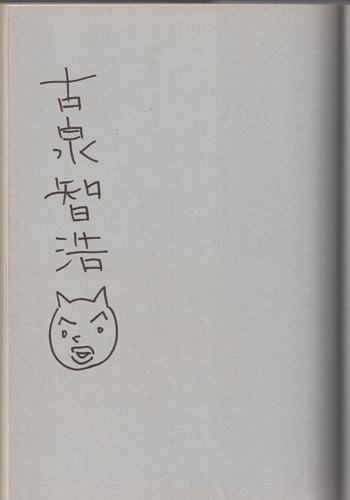 古泉智浩